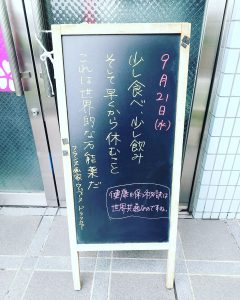 9月21日(水)
少し食べ、少し飲み
そして早くから休むこと
これは世界的な万能薬だ
フランス画家 ウジェーヌ ドラクロア
健康を保つ秘訣は
世界共通なのですね。